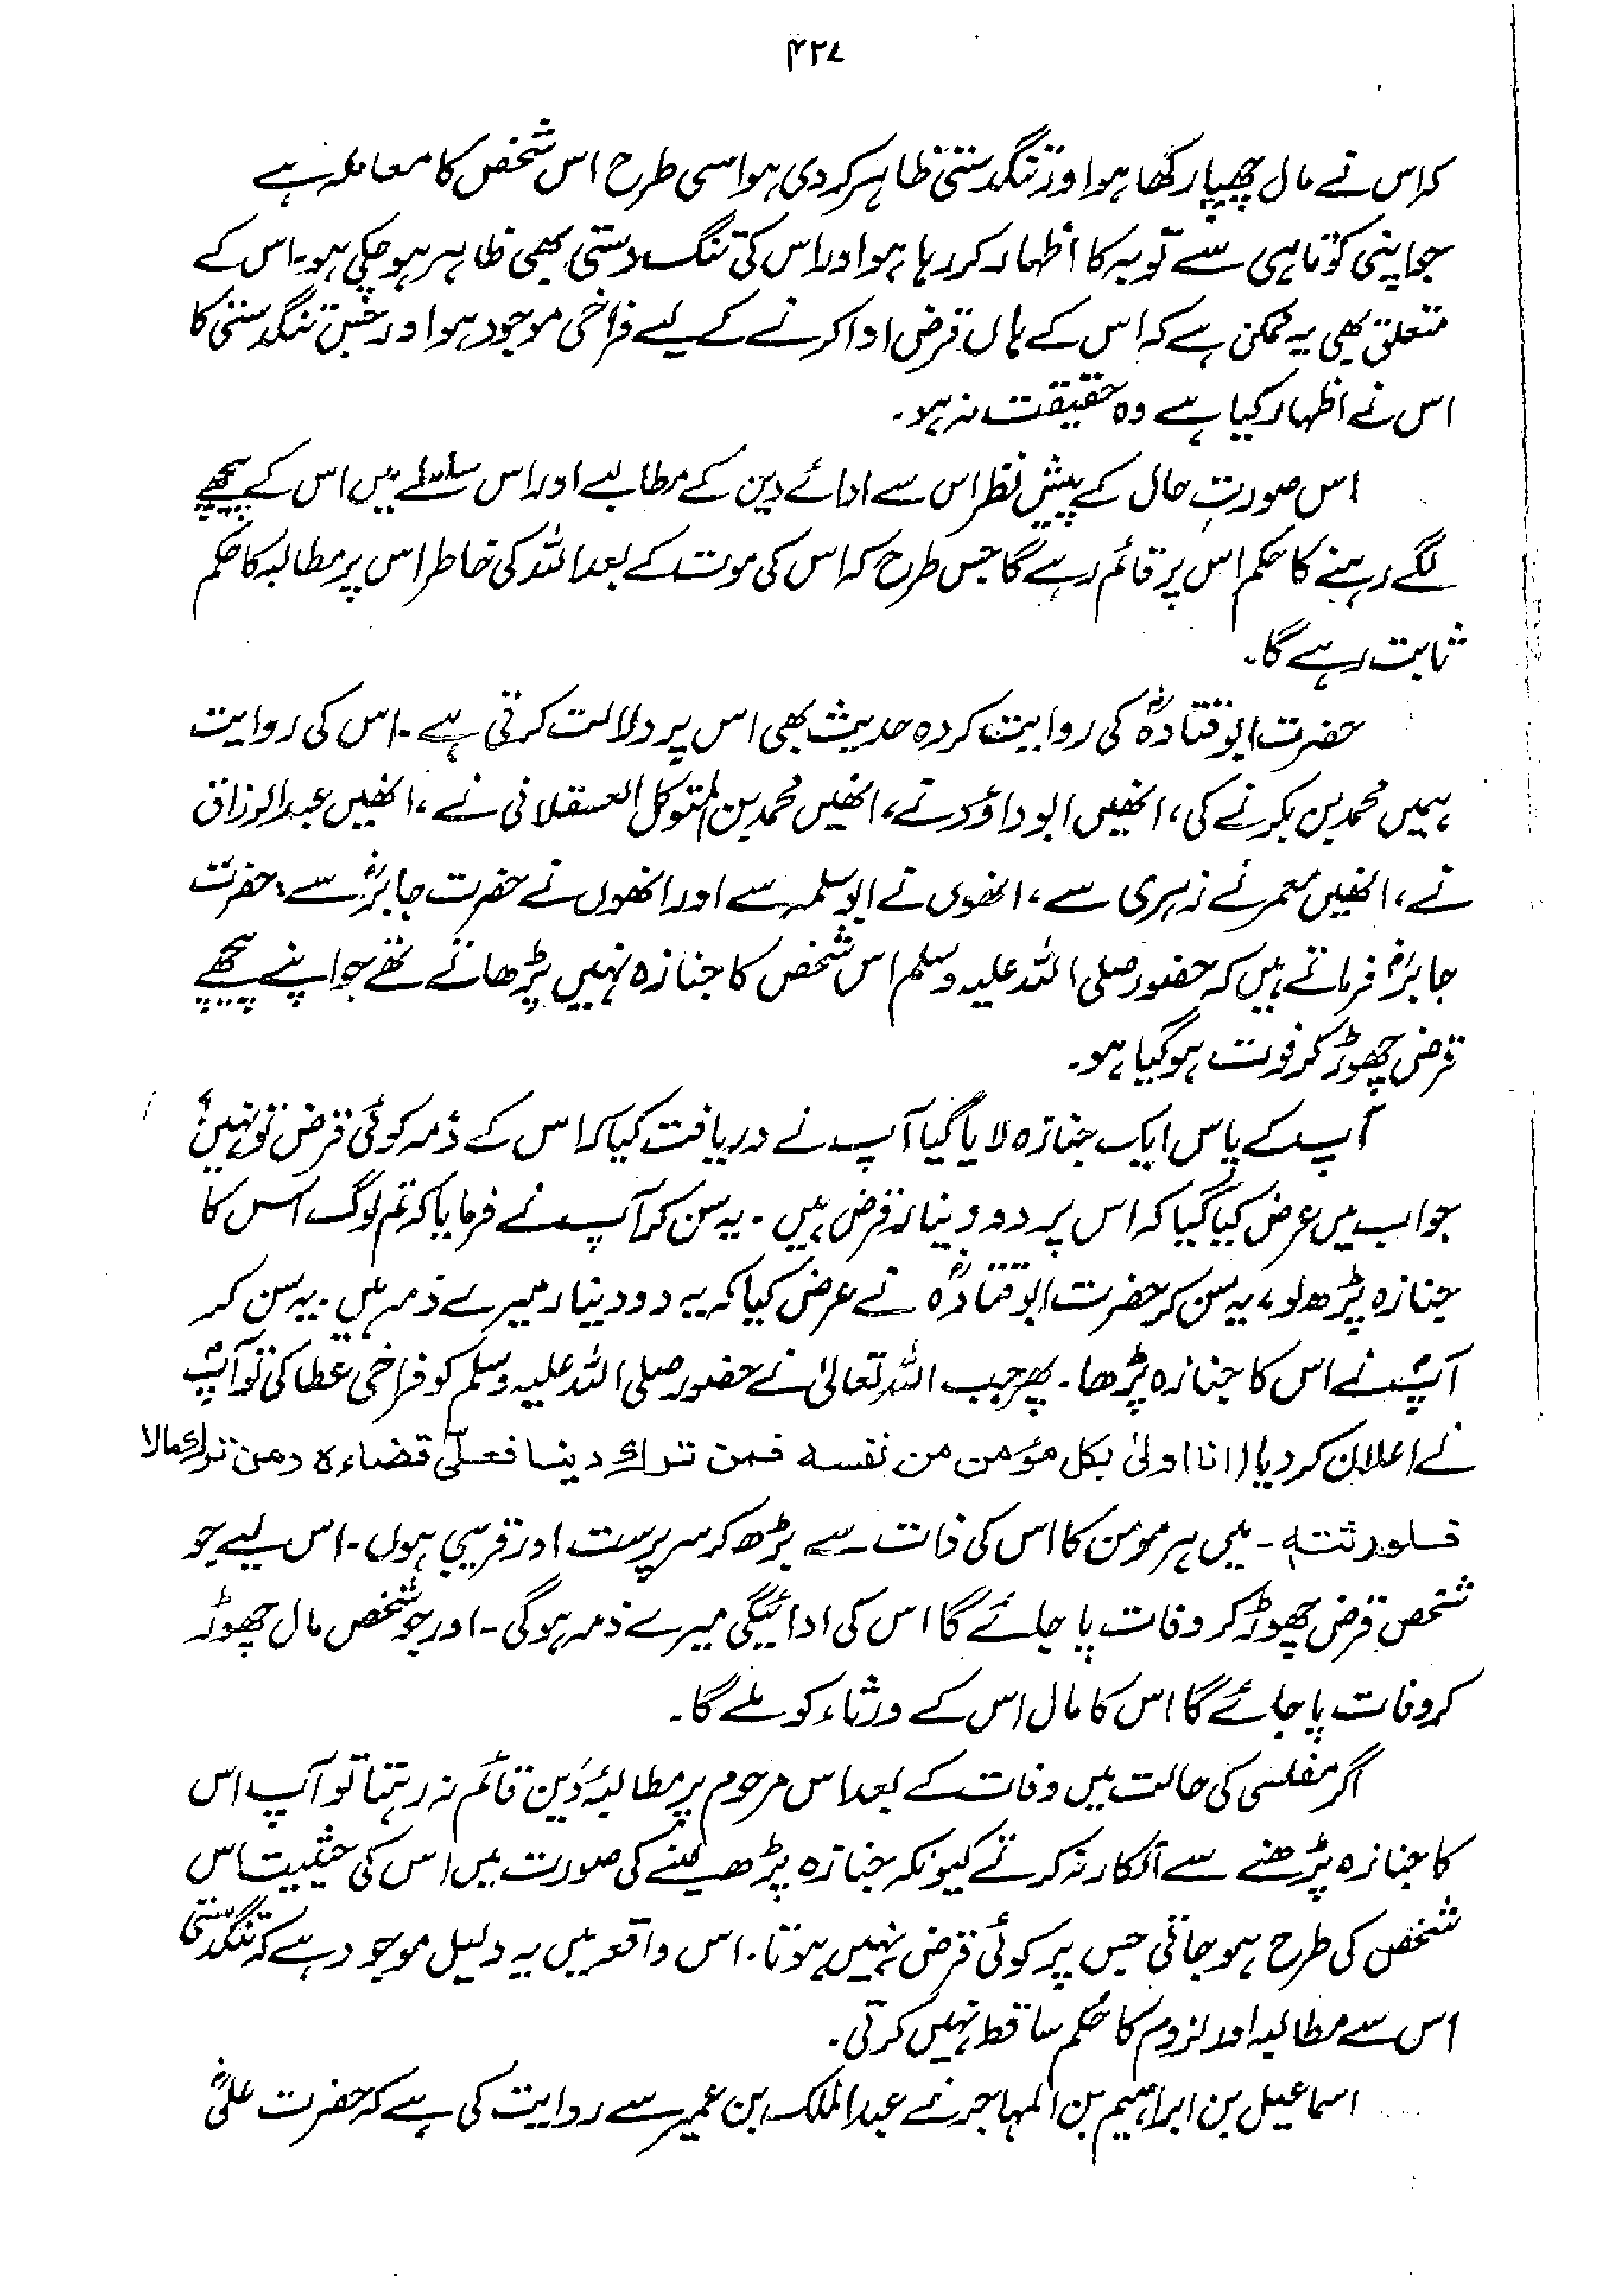 ۴۲۷
کہ اس نے مال چھپا رکھا ہو اور تنگدستی ظاہر کر دی ہو اسی طرح اس شخص کا معاملہ ہے
جو اپنی کوتاہی سے توبہ کا اظہار کر رہا ہو اور اس کی تنگ دستی بھی ظاہر ہو چکی ہو۔ اس کے
متعلق بھی یہ ممکن ہے کہ اس کے ہاں قرض ادا کرنے کے لیے فراخی موجود ہو اور جس تنگدستی کا
اس نے اظہار کیا ہے وہ حقیقت نہ ہو۔
اس صورتِ حال کے پیش نظر اس سے ادائے دین کے مطالبے اور اس سلسلے میں اس کے پیچھے
لگے رہنے کا حکم اس پر قائم رہے گا جس طرح کہ اس کی موت کے بعد اللہ کی خاطر اس پر مطالبہ کا حکم
ثابت رہے گا۔
حضرت ابوقتادہؓ کی روایت کردہ حدیث بھی اس پر دلالت کرتی ہے۔ اس کی روایت
ہمیں محمد بن بکر نے کی، انھیں ابوداؤد نے، انھیں محمد بن المتوکل العسقلانی نے، انھیں عبدالرزاق
نے، انھیں معمر نے زہری سے، انھوں نے ابوسلمہ سے اور انھوں نے حضرت جابرؓ سے، حضرت
جابرؓ فرماتے ہیں کہ حضور صلی اللہ علیہ وسلم اس شخص کا جنازہ نہیں پڑھاتے تھے جو اپنے پیچھے
قرض چھوڑ کر فوت ہو گیا ہو۔
آپ کے پاس ایک جنازہ لایا گیا آپ نے دریافت کیا کہ اس کے ذمہ کوئی قرض تو نہیں؟
جواب میں عرض کیا گیا کہ اس پر دو دینار قرض ہیں۔ یہ سن کر آپ نے فرمایا کہ تم لوگ اس کا
جنازہ پڑھ لو، یہ سن کر حضرت ابوقتادہؓ نے عرض کیا کہ یہ دو دینار میرے ذمہ ہیں۔ یہ سن کر
آپؐ نے اس کا جنازہ پڑھا۔ پھر جب اللہ تعالیٰ نے حضور صلی اللہ علیہ وسلم کو فراخی عطا کی تو آپؐ
نے اعلان کر دیا (انا اولیٰ بکل مؤمن من نفسه فمن ترك دینا فعلیّ قضاءہ ومن ترك مالا
فلورثته۔ میں ہر مومن کا اس کی ذات سے بڑھ کر سرپرست اور قریبی ہوں۔ اس لیے جو
شخص قرض چھوڑ کر وفات پا جائے گا اس کی ادائیگی میرے ذمہ ہوگی۔ اور جو شخص مال چھوڑ
کر وفات پا جائے گا اس کا مال اس کے ورثاء کو ملے گا۔
اگر مفلسی کی حالت میں وفات کے بعد اس مرحوم پر مطالبۂ دَین قائم نہ رہتا تو آپ اس
کا جنازہ پڑھنے سے انکار نہ کرتے کیونکہ جنازہ پڑھ لینے کی صورت میں اس کی حیثیت اس
شخص کی طرح ہو جاتی جس پر کوئی قرض نہیں ہوتا۔ اس واقعہ میں یہ دلیل موجود ہے کہ تنگدستی
اس سے مطالبہ اور لزوم کا حکم ساقط نہیں کرتی۔
اسماعیل بن ابراہیم بن المہاجر نے عبدالملک بن عمیر سے روایت کی ہے کہ حضرت علیؓ